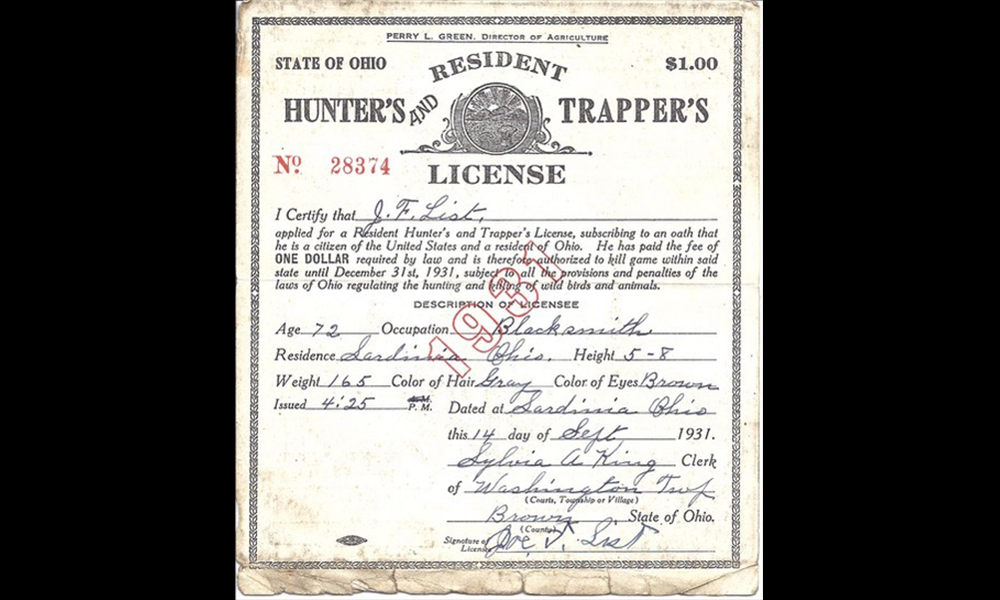 PERRY L. GREEN, DIRECTOR OF AGRICULTURE
STATE OF OHIO RESIDENT $1.00
HUNTER'S AND TRAPPER'S
Nº 28374 LICENSE
I Certify that J. F. List.
applied for a Resident Hunter's and Trapper's License, subscribing to an oath that
he is a citizen of the United States and a resident of Ohio. He has paid the fee of
ONE DOLLAR required by law and is therefore authorized to kill game within said
state until December 31st, 1931, subject to all the provisions and penalties of the
laws of Ohio regulating the hunting and killing of wild birds and animals.
1931
DESCRIPTION OF LICENSEE
Age 72 Occupation Blacksmith
Residence Sardinia Ohio. Height 5-8
Weight 165 Color of Hair Gray Color of Eyes Brown
Issued 4:25 A.M. P.M. Dated at Sardinia Ohio
this 14 day of Sept 1931.
Sylvia A King Clerk
of Washington Twp
(Courts, Township or Village)
Brown, State of Ohio.
(County)
Signature of Licensee Joe. F. List